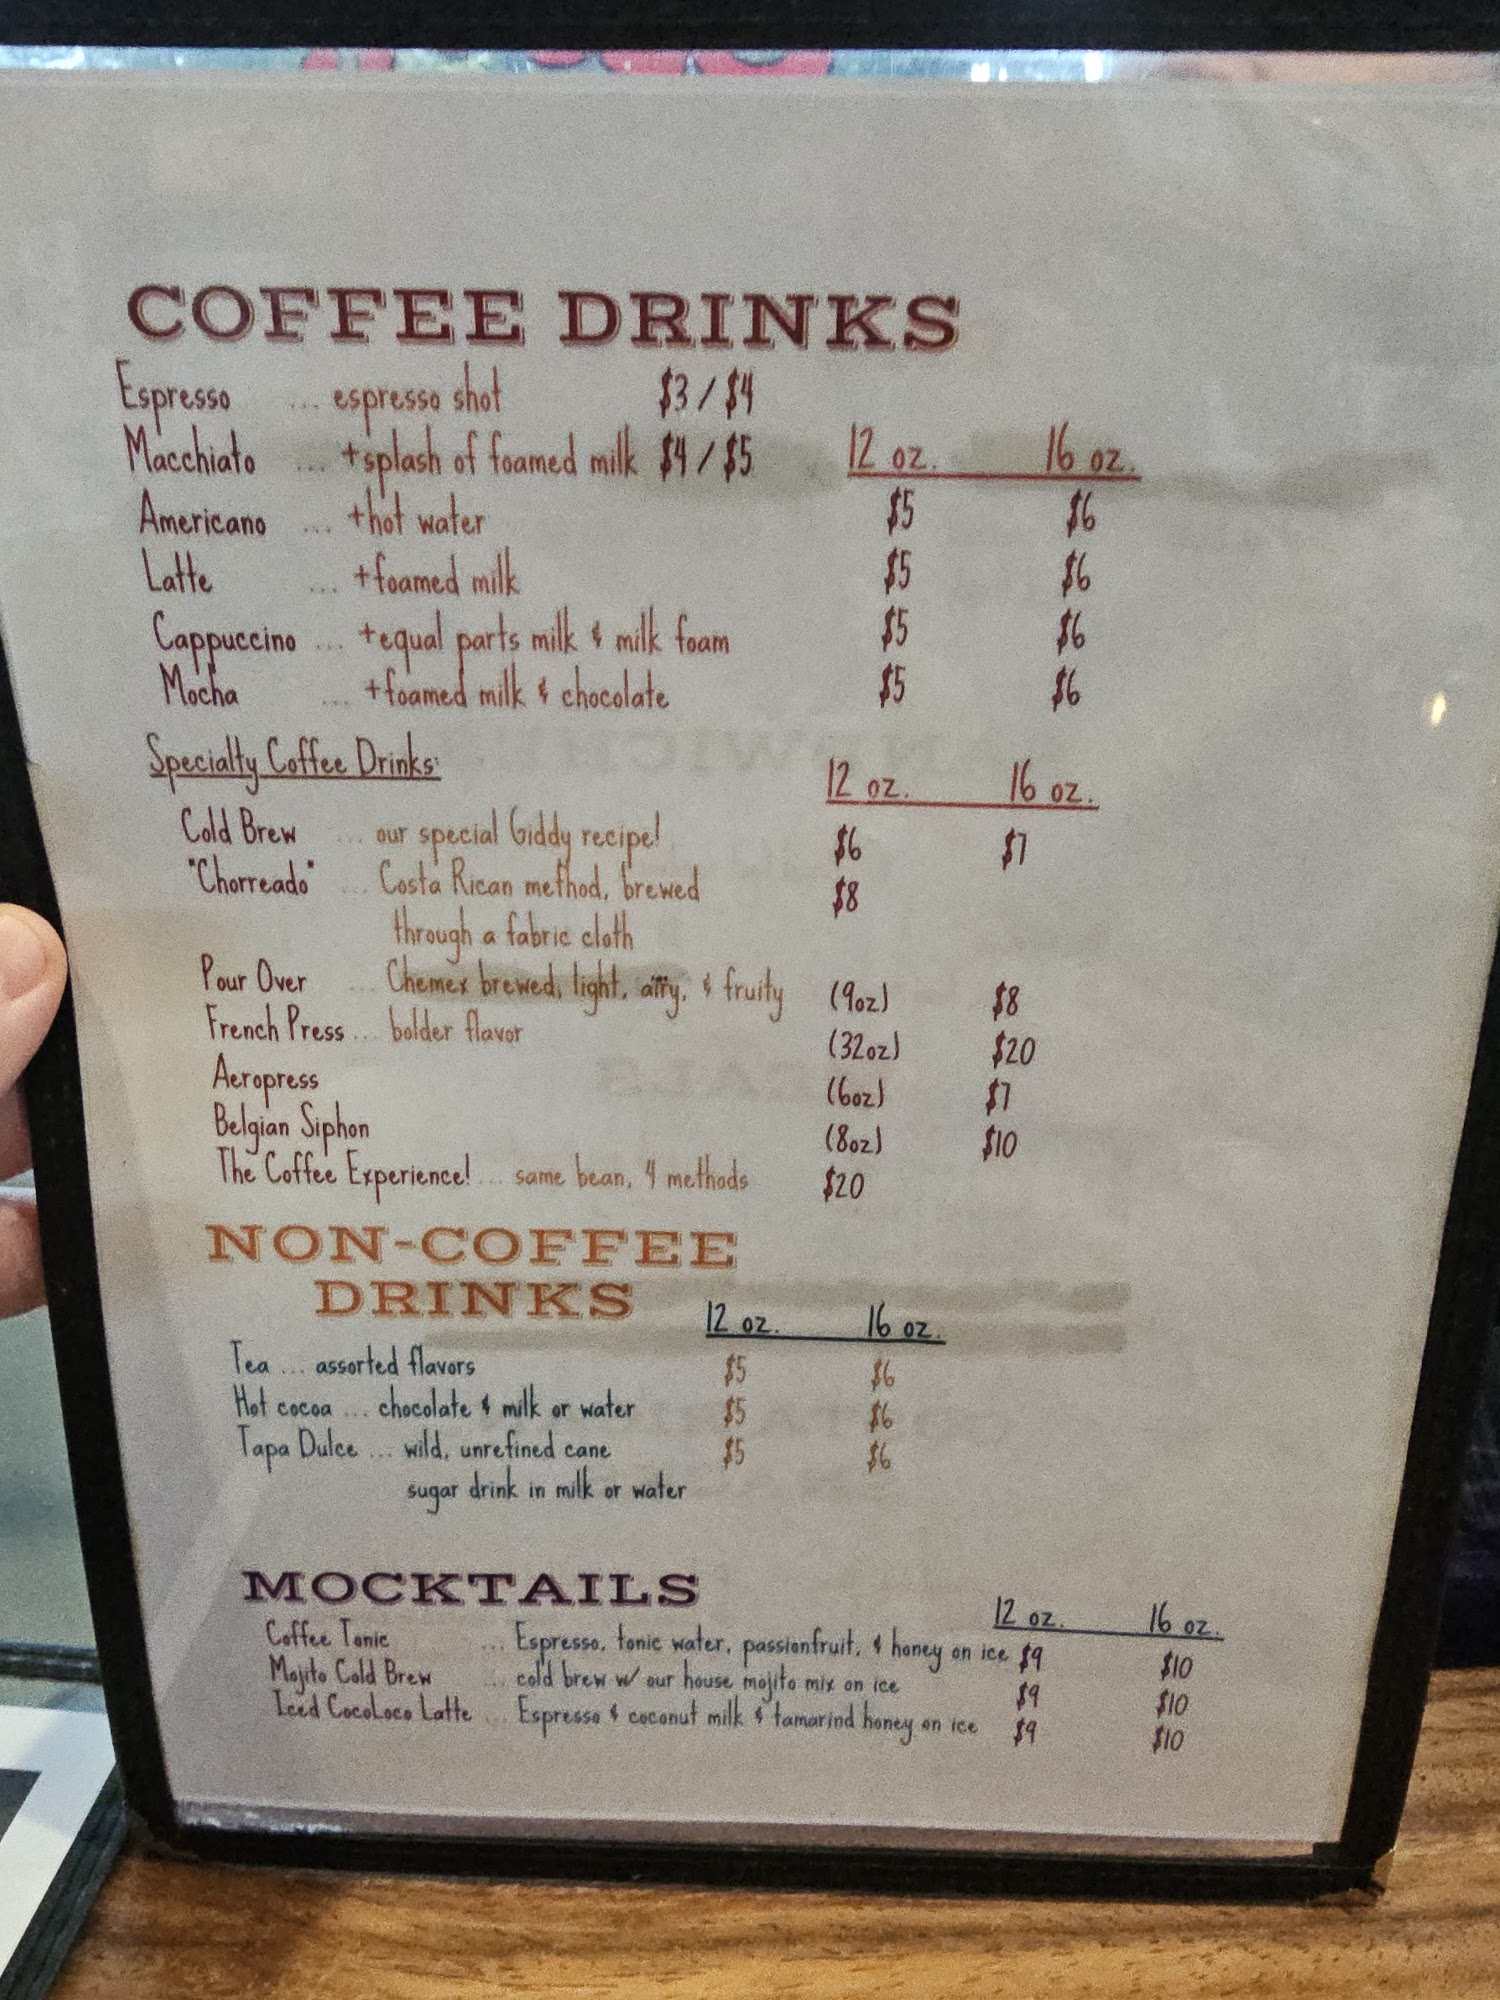 COFFEE DRINKS
Espresso ... espresso shot $3 / $4
Macchiato ... +splash of foamed milk $4 / $5 12 oz. 16 oz.
Americano ... +hot water $5 $6
Latte ... +foamed milk $5 $6
Cappuccino ... +equal parts milk & milk foam $5 $6
Mocha ... +foamed milk & chocolate $5 $6
Specialty Coffee Drinks: 12 oz. 16 oz.
Cold Brew ... our special Giddy recipe! $6 $7
"Chorreado" ... Costa Rican method, brewed $8
through a fabric cloth
Pour Over ... Chemex brewed, light, airy, & fruity (9oz) $8
French Press ... bolder flavor (32oz) $20
Aeropress (6oz) $7
Belgian Siphon (8oz) $10
The Coffee Experience! ... same bean, 4 methods $20
NON-COFFEE
DRINKS 12 oz. 16 oz.
Tea ... assorted flavors $5 $6
Hot cocoa ... chocolate & milk or water $5 $6
Tapa Dulce ... wild, unrefined cane $5 $6
sugar drink in milk or water
MOCKTAILS 12 oz. 16 oz.
Coffee Tonic ... Espresso, tonic water, passionfruit, & honey on ice $9 $10
Mojito Cold Brew ... cold brew w/ our house mojito mix on ice $9 $10
Iced CocoLoco Latte ... Espresso & coconut milk & tamarind honey on ice $9 $10